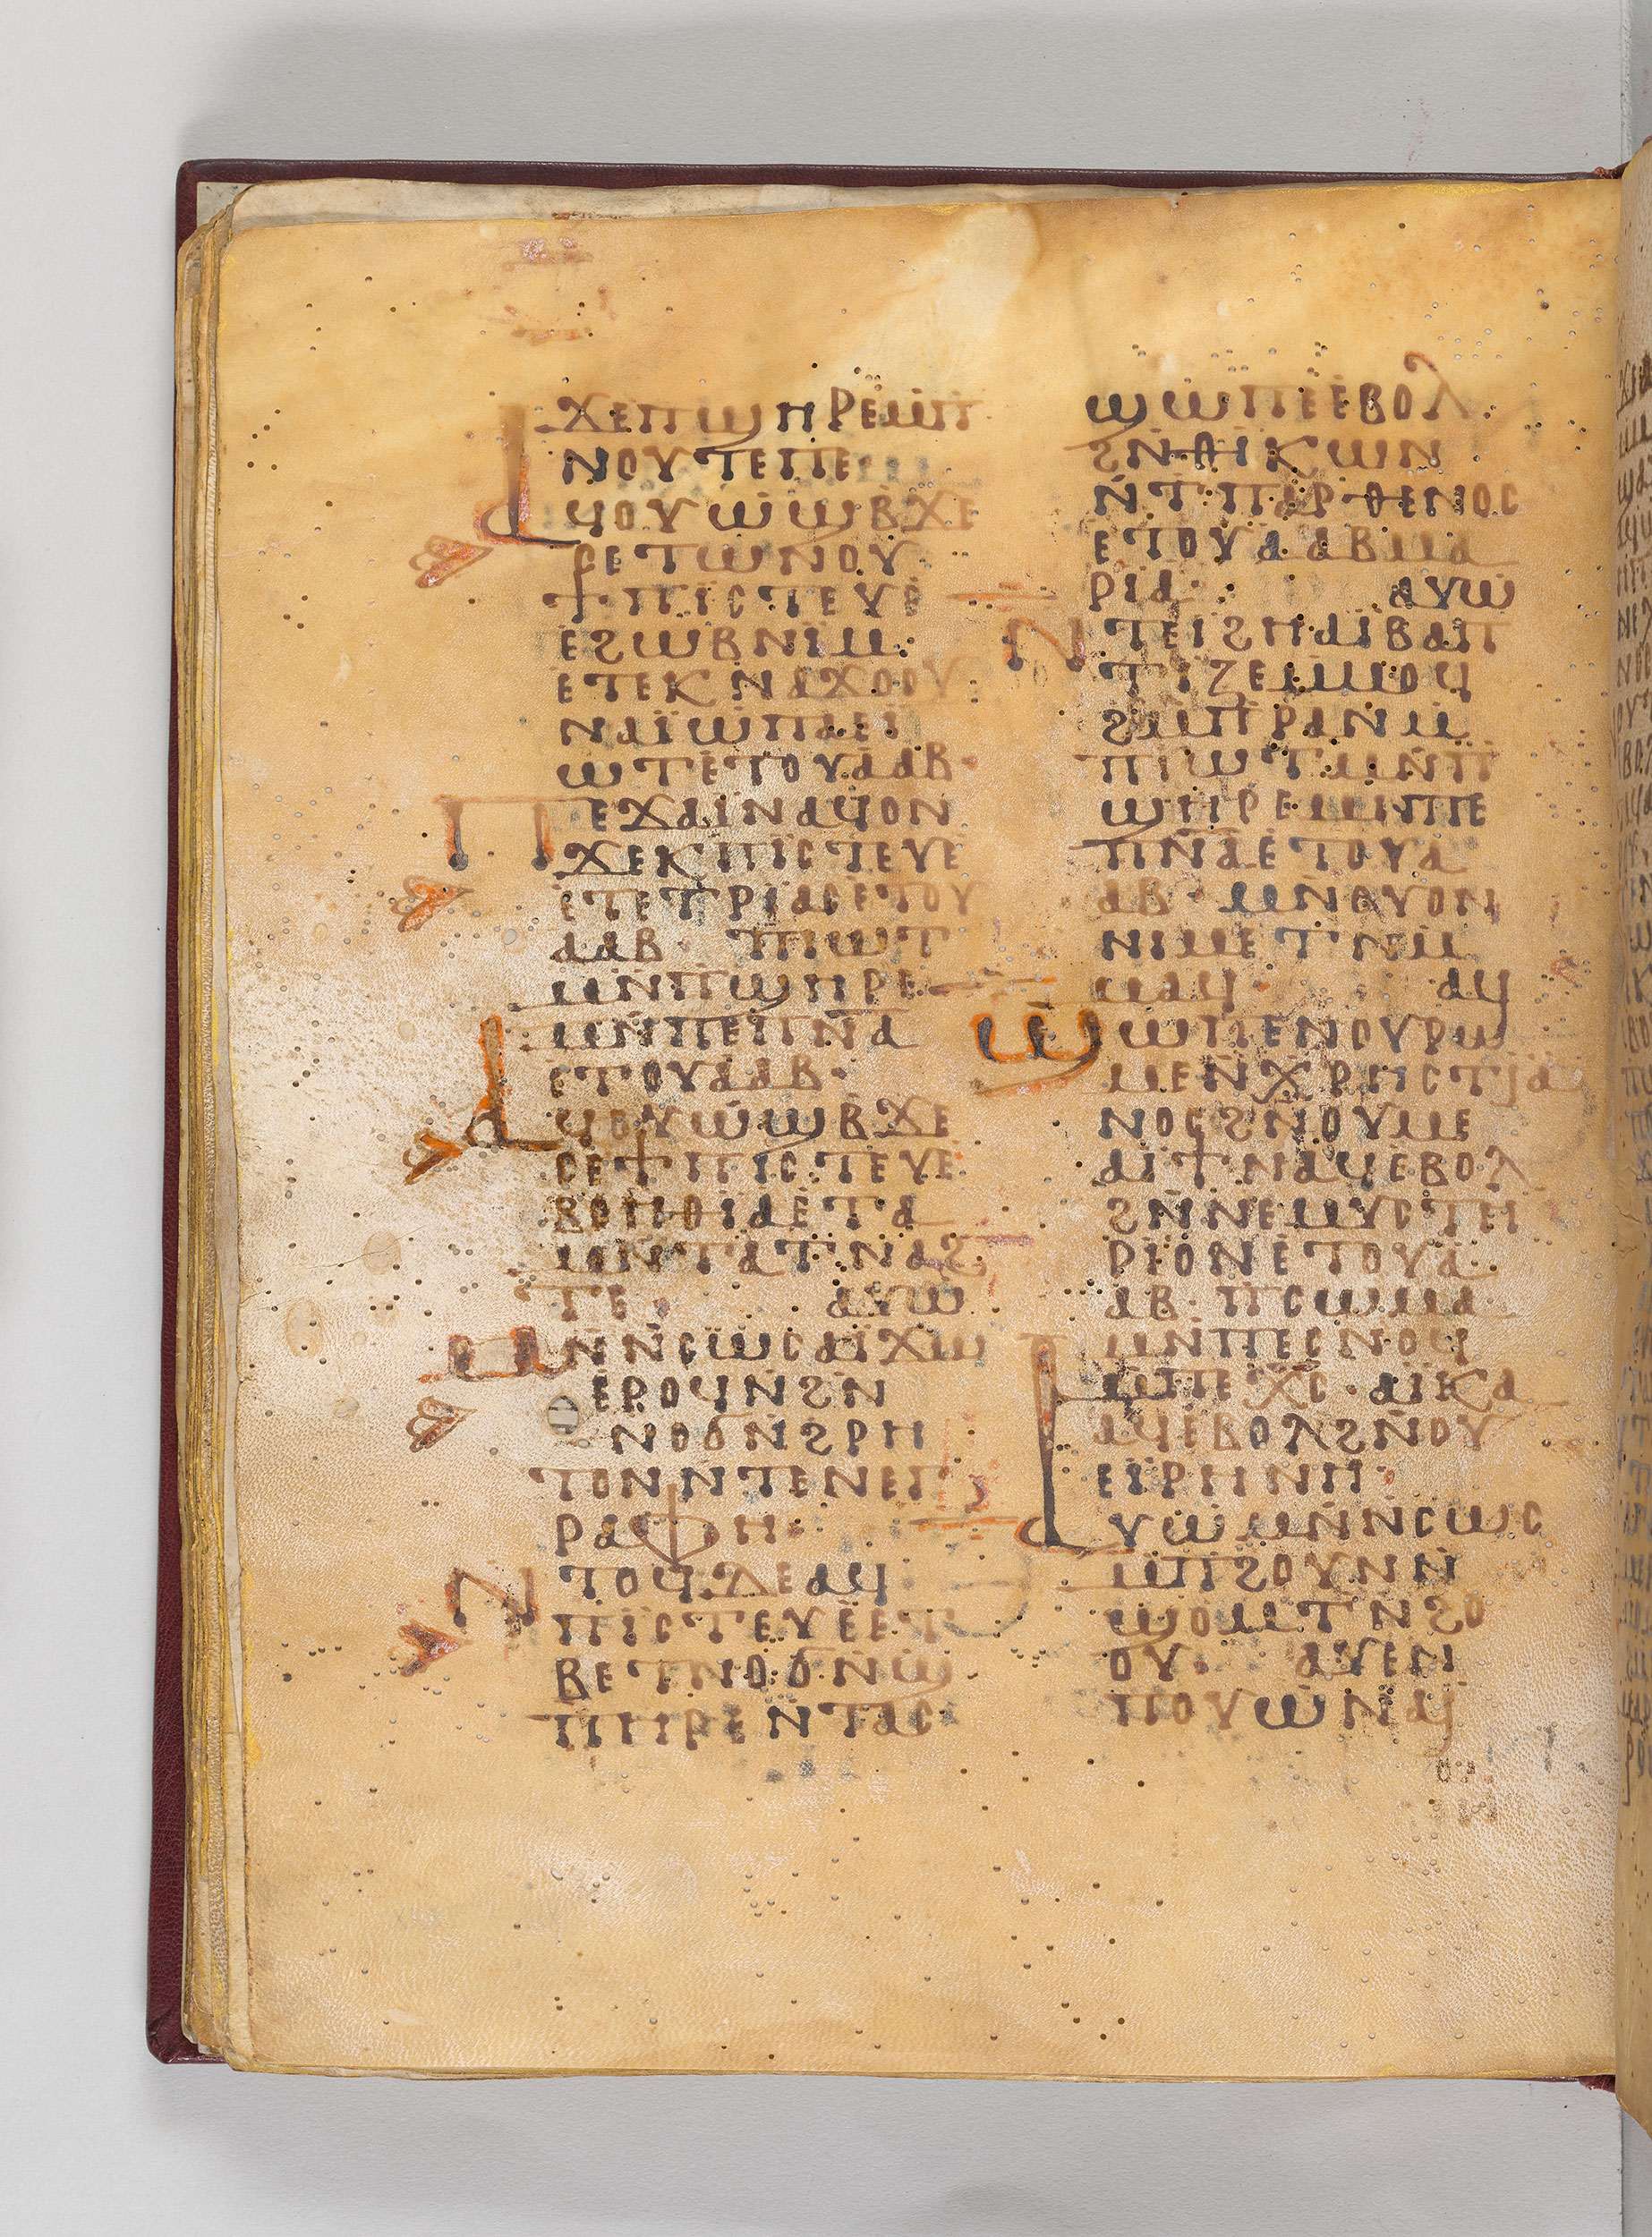 ϫⲉⲡϣⲏⲣⲉⲙⲡ
ⲛⲟⲩⲧⲉⲡⲉ
ⲁϥⲟⲩⲱϣⲃϫⲉ
ⲥⲉⲧⲱⲛⲟⲩ
ϯⲡⲓⲥⲧⲉⲩⲉ
ⲉϩⲱⲃⲛⲓⲙ·
ⲉⲧⲉⲕⲛⲁϫⲟⲟⲩ
ⲛⲁⲓ̈ⲱⲡⲁⲉⲓ
ⲱⲧⲉⲧⲟⲩⲁⲁⲃ·
ⲡⲉϫⲁⲓⲛⲁϥⲟⲛ
ϫⲉⲕⲡⲓⲥⲧⲉⲩⲉ
ⲉⲧⲉⲧⲣⲓⲁⲥⲉⲧⲟⲩ
ⲁⲁⲃ· ⲡⲓⲱⲧ
ⲙⲛ̄ⲡϣⲏⲣⲉ
ⲙⲛ̄ⲡⲉⲡⲛ̄ⲁ
ⲉⲧⲟⲩⲁⲁⲃ·
ⲁϥⲟⲩⲱϣⲃϫⲉ
ⲥⲉϯⲡⲓⲥⲧⲉⲩⲉ
ⲃⲟⲏⲑⲓⲁⲉⲧⲁ
ⲙⲛ̄ⲧⲁⲧⲛⲁϩ
ⲧⲉ· ⲁⲩⲱ
ⲙⲛ̄ⲛ̄ⲥⲱⲥⲁⲓ̈ϫⲱ
ⲉⲣⲟϥⲛ̄ϩⲛ
ⲛⲟϭⲛ̄ϩⲣⲏ
ⲧⲟⲛⲛ̄ⲧⲉⲛⲉⲅ
ⲣⲁⲫⲏ·
ⲛⲧⲟϥⲇⲉⲁϥ
ⲡⲓⲥⲧⲉⲩⲉⲉⲧ
ⲃⲉⲧⲛⲟϭⲛ̄ϣ
ⲡⲏⲣⲉⲛ̄ⲧⲁⲥ
ϣⲱⲡⲉⲉⲃⲟⲗ·
ϩⲛ̄ⲑⲓⲕⲱⲛ
ⲛ̄ⲧⲡⲁⲣⲑⲉⲛⲟⲥ
ⲉⲧⲟⲩⲁⲁⲃⲙⲁ
ⲣⲓⲁ· ⲁⲩⲱ
ⲛⲧⲉⲓϩⲏⲁⲓ̈ⲃⲁⲡ
ⲧⲓⲍⲉⲙⲙⲟϥ
ϩⲙ̄ⲡⲣⲁⲛⲙ̄
ⲡⲓⲱⲧⲙⲛ̄ⲡ
ϣⲏⲣⲉⲙⲛⲡⲉ
ⲡⲛ̄ⲁⲉⲧⲟⲩⲁ
ⲁⲃ· ⲙⲛ̄ⲟⲩⲟⲛ
ⲛⲓⲙⲉⲧⲛⲙ̄
ⲙⲁϥ· ⲁϥ
ϣⲱⲡⲉⲛⲟⲩⲣⲱ
ⲙⲉⲛ̄ⲭⲣⲏⲥⲧⲓⲁ
ⲛⲟⲥϩⲛ̄ⲟⲩⲙⲉ
ⲁⲓϯⲛⲁϥⲉⲃⲟⲗ
ϩⲛ̄ⲛⲉⲙⲩⲥⲧⲏ
ⲣⲓⲟⲛⲉⲧⲟⲩⲁ
ⲁⲃ· ⲡⲥⲱⲙⲁ
ⲙⲛ̄ⲡⲉⲥⲛⲟϥ
ⲙⲡⲉⲭ̄ⲥ· ⲁⲓ̈ⲕⲁ
ⲁϥⲉⲃⲟⲗϩⲛ̄ⲟⲩ
ⲉⲓⲣⲏⲛⲏ·
ⲁⲩⲱⲙⲛ̄ⲛ̄ⲥⲱⲥ
ⲙⲡϩⲟⲩⲛ̄ⲛ
ϣⲟⲙⲧⲛ̄ϩⲟ
ⲟⲩ· ⲁⲩⲉⲛ
ⲡⲟⲩⲱⲛⲁϥ